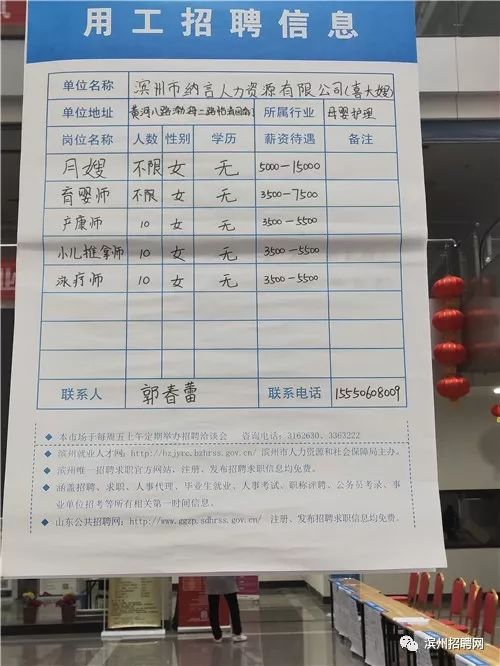 用工招聘信息
单位名称 滨州市纳言人力资源有限公司(喜大嫂)
单位地址 黄河八路渤海二路 所属行业 母婴护理
岗位名称 人数 性别 学历 薪资待遇 备注
月嫂 不限 女 无 5000-15000
育婴师 不限 女 无 3500-7500
产康师 10 女 无 3500-5500
小儿推拿师 10 女 无 3500-5500
泳疗师 10 女 无 3500-5500
联系人 郭春蕾 联系电话 15550608009
◆ 本市场于每周五上午定期举办招聘洽谈会 咨询电话:3162630、3363222
◆ 滨州就业人才网:http://bzjycc.bzhrss.gov.cn/ 滨州市人力资源和社会保障局主办。
◆ 滨州唯一招聘求职官方网站,注册、发布招聘求职信息均免费。
◆ 涵盖招聘、求职、人事代理、毕业生就业、人事考试、职称评聘、公务员考录、事
业单位招考等所有相关第一时间信息。
◆ 山东公共招聘网:http://www.ggzp.sdhrss.gov.cn/ 注册、发布招聘求职信息均免费。
滨州招聘网